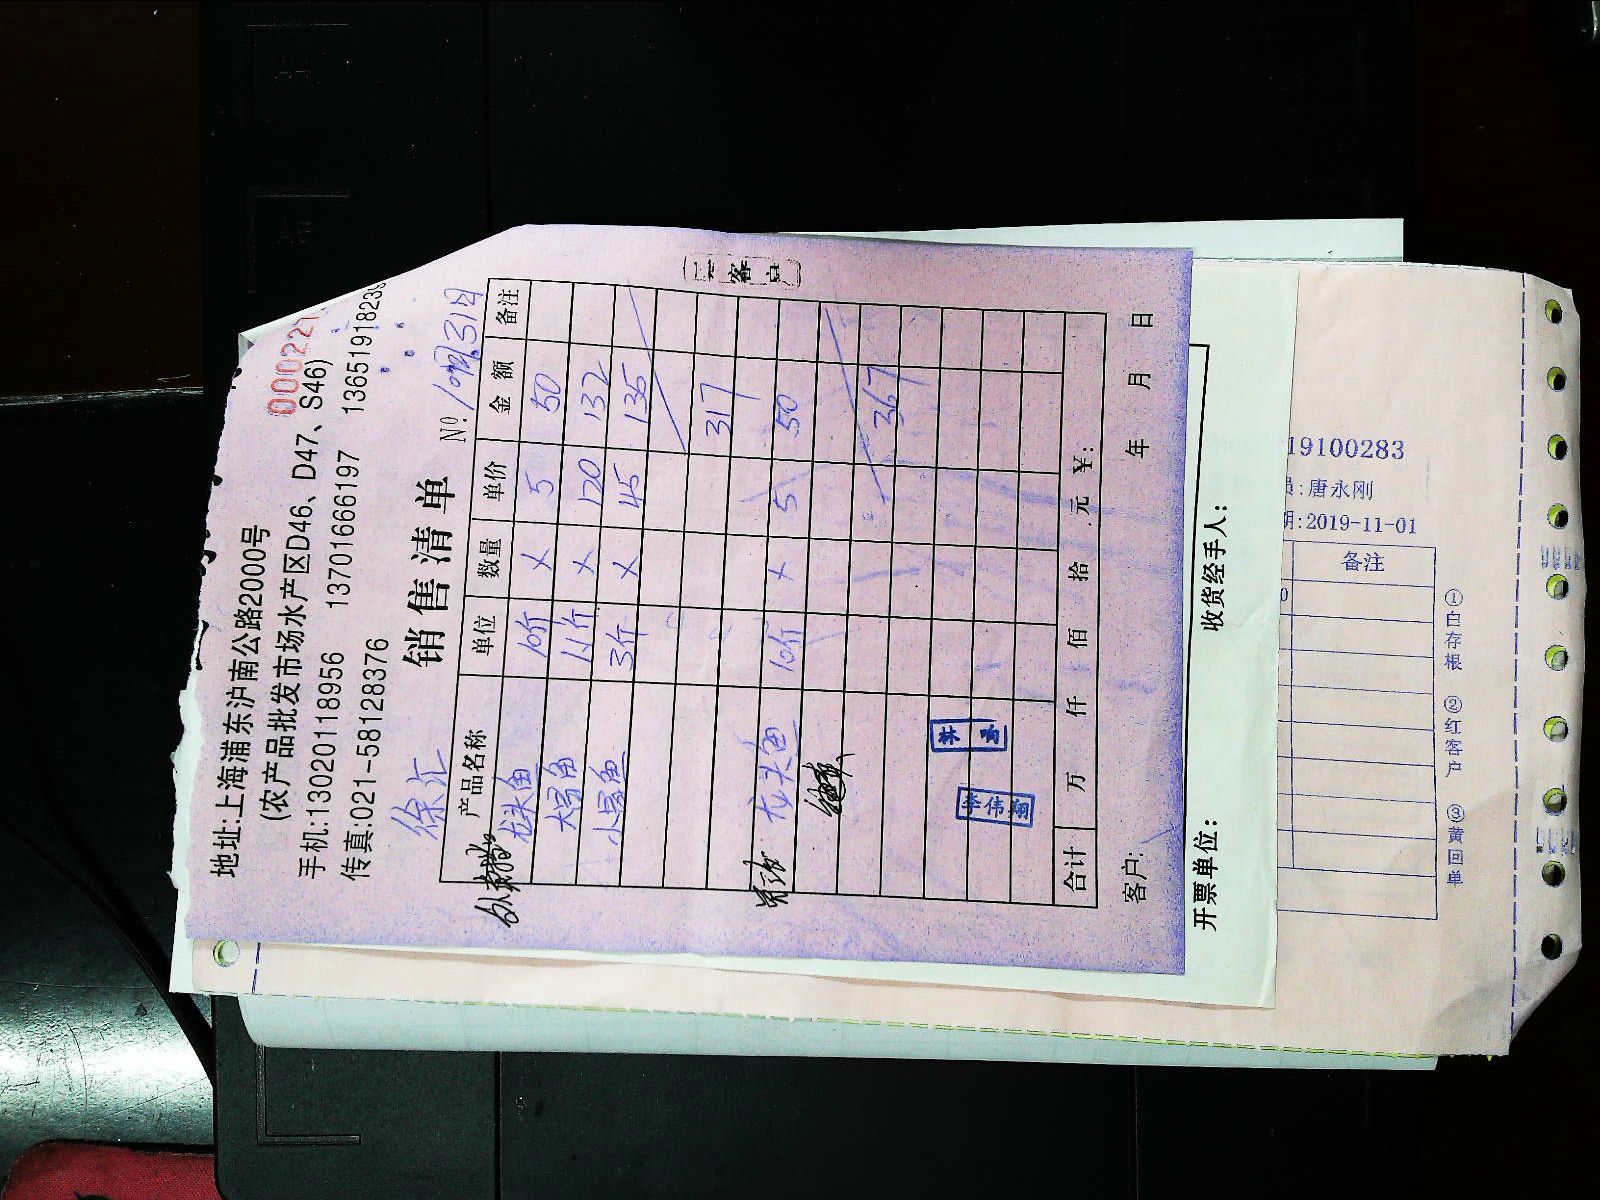 地址:上海浦东沪南公路2000号
(农产品批发市场水产区D46、D47、S46)
手机:13020118956 13701666197 1365191823
传真:021-58128376
000227
销售清单
徐汇
№ 10月31日
产品名称 单位 数量 单价 金额 备注
龙头鱼 10斤 × 5 50
大昌鱼 1.1斤 × 120 132
小昌鱼 3斤 × 45 135
317
龙头鱼 10斤 × 5 50
367
合计 万 仟 佰 拾 元 ¥:
客户: 年 月 日
开票单位: 收货经手人:
19100283
员:唐永刚
期:2019-11-01
备注
0
①白存根 ②红客户 ③黄回单